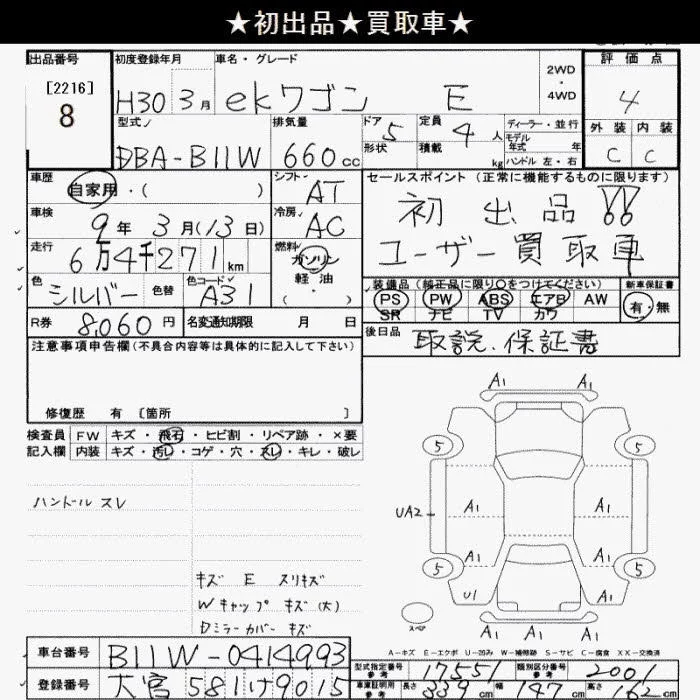 ★初出品★買取車★
出品番号 初度登録年月 車名・グレード 2WD・4WD 評価点
[2216]
8 H30 3月 ekワゴン E 4
型式 排気量 ドア 5 定員 4人 ディーラー・並行 外装 内装
DBA-B11W 660cc 形状 積載 kg モデル年式 年 C C
ハンドル 左・右
車歴 自家用・( ) シフト AT セールスポイント (正常に機能するものに限ります)
車検 9年3月(13日) 冷房 AC 初出品!!
走行 6万4千271km 燃料 ガソリン 軽油 ( ) ユーザー買取車
色 シルバー 色替 色コード A31 装備品(純正品に限り○をつけてください) 新車保証書
PS PW ABS エアB AW 有・無
SR ナビ TV カワ
R券 8,060円 名変通知期限 月 日 後日品 取説、保証書
注意事項申告欄(不具合内容等は具体的に記入して下さい)
修復歴 有 [箇所 ]
検査員 FW キズ・飛石・ヒビ割・リペア跡・×要
記入欄 内装 キズ・汚レ・コゲ・穴・スレ・キレ・破レ
ハンドル スレ
キズ E スリキズ
Wキャップ キズ(大)
Dミラーカバー キズ
A1 A1
A1 A1
5 5
A1 A1
UA2
A1 A1
5 5
U1 A1
スペア
A1 A1
A1 A1
A-キズ E-エクボ U-凹み W-補修跡 S-サビ C-腐食 XX-交換済
車台番号 B11W-0414993 型式指定番号 参考 17551 類別区分番号 参考 2001
登録番号 大宮581け9015 車庫証明用 参考 長さ 339cm 幅 147cm 高さ cm